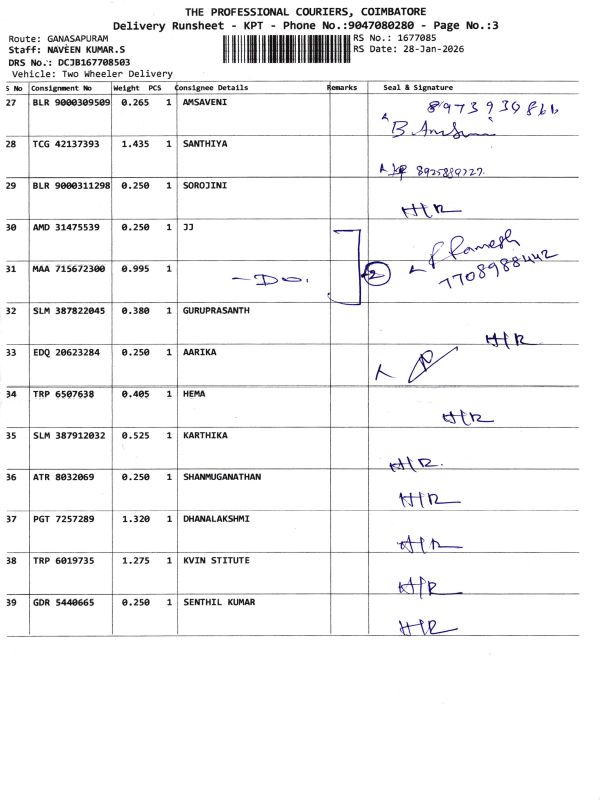 THE PROFESSIONAL COURIERS, COIMBATORE
Delivery Runsheet - KPT - Phone No.:9047080280 - Page No.:3
Route: GANASAPURAM
RS No.: 1677085
Staff: NAVEEN KUMAR.S
RS Date: 28-Jan-2026
DRS No.: DCJB167708503
Vehicle: Two Wheeler Delivery
S No Consignment No Weight PCS Consignee Details Remarks Seal & Signature
27 BLR 9000309509 0.265 1 AMSAVENI
28 TCG 42137393 1.435 1 SANTHIYA
8925889727.
29 BLR 9000311298 0.250 1 SOROJINI
H/R
30 AMD 31475539 0.250 1 JJ
P Ramesh
7708988442
31 MAA 715672300 0.995 1 -Do. 2
32 SLM 387822045 0.380 1 GURUPRASANTH
H/R
33 EDQ 20623284 0.250 1 AARIKA
34 TRP 6507638 0.405 1 HEMA
H/R
35 SLM 387912032 0.525 1 KARTHIKA
H/R.
36 ATR 8032069 0.250 1 SHANMUGANATHAN
H/R
37 PGT 7257289 1.320 1 DHANALAKSHMI
H/R
38 TRP 6019735 1.275 1 KVIN STITUTE
H/R
39 GDR 5440665 0.250 1 SENTHIL KUMAR
H/R